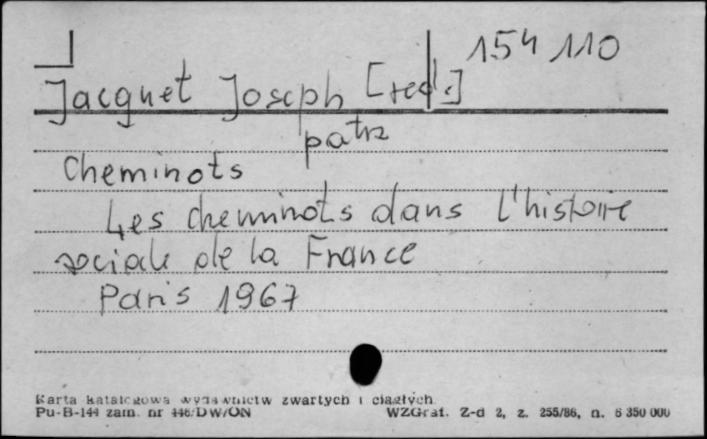 154 110
Jacquet Joseph [red.]
patrz
Cheminots
Les cheminots dans l'histoire
sociale de la France
Paris 1967
Karta katalogowa wydawnictw zwartych i ciągłych.
Pu-B-144 zam. nr 446/DW/ON WZGraf. Z-d 2, z. 255/86, n. 6 350 000